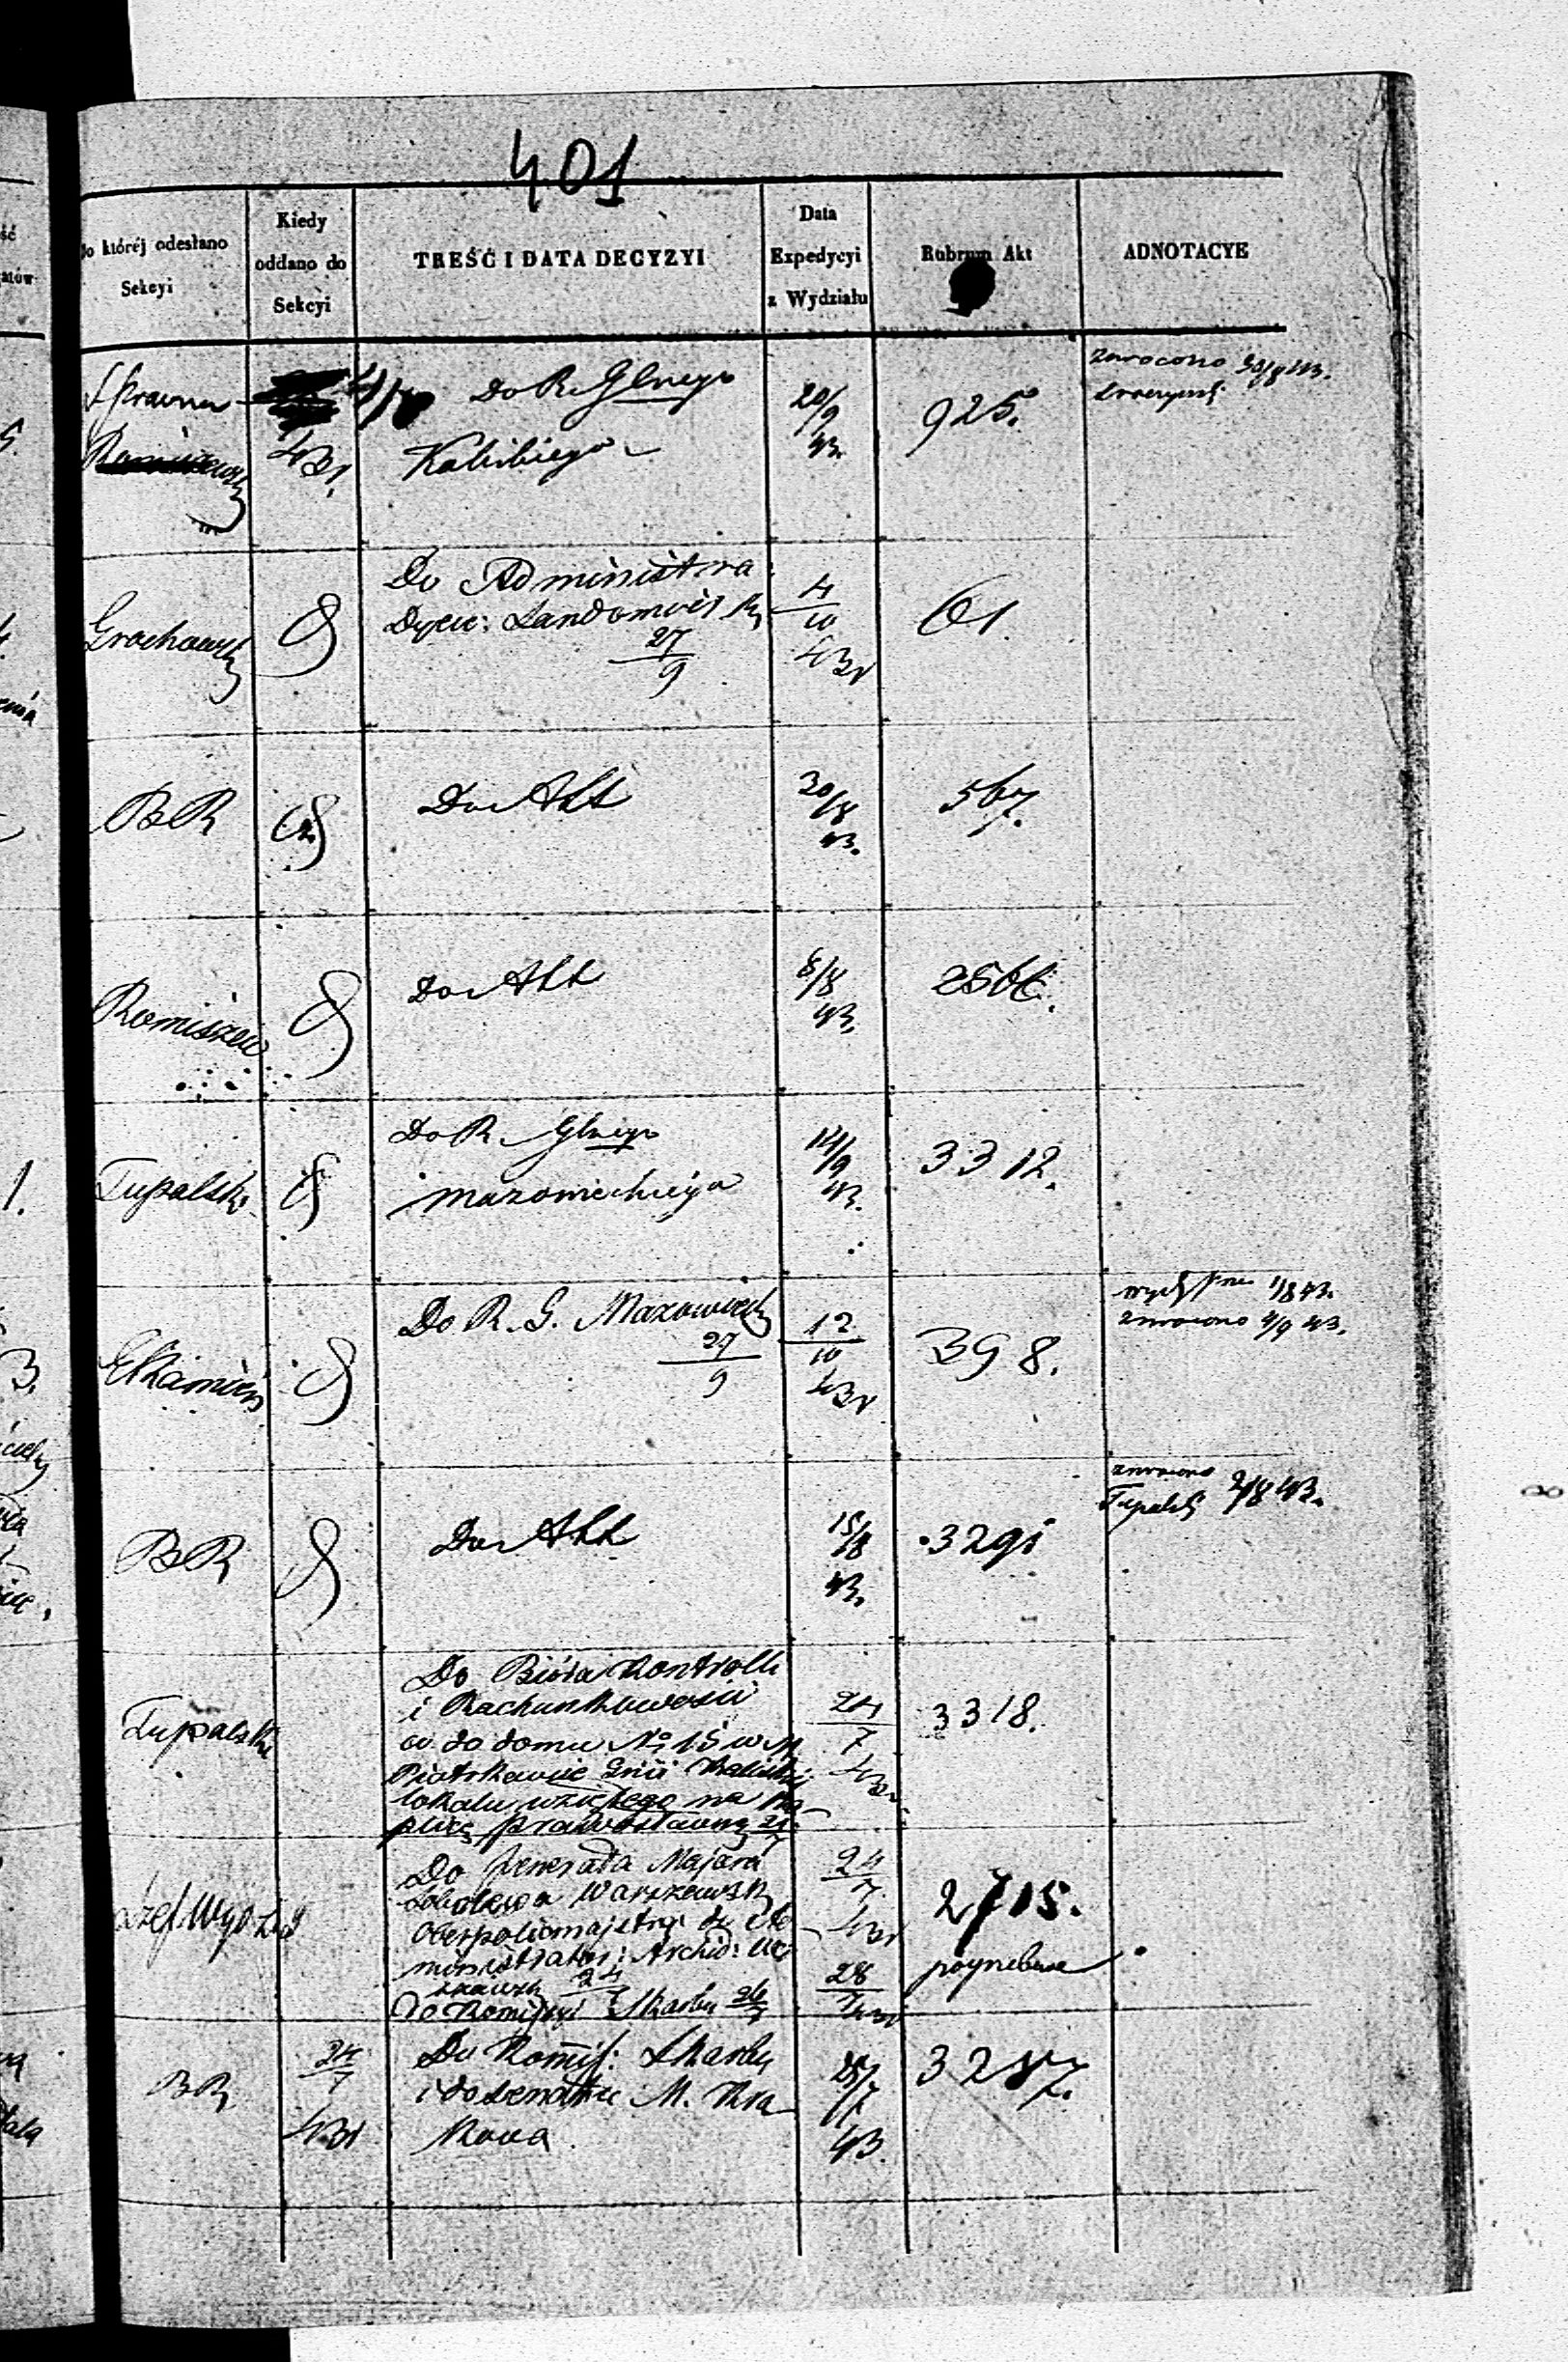 401
Do któréj odesłano
Sekcyi
Kiedy
oddano do
Sekcyi
TREŚĆ I DATA DECYZYI
Data
Expedycyi
z Wydziału
Rubrum Akt
ADNOTACYE
Do R. Glnego
Kaliskiego
20/9
43.
925.
zwrócono 30/8 43.
Grochowski
Do Administra
Dyec: Sandomirsk
27
9
4
10
43r
61.
BR
Do Akt
30/8
43.
567.
Romiszew
Do Akt
8/8
43.
Tupalski
Do R. Glnego
Mazowieckiego
14/9
43.
3312.
Do R. G. Mazowieck
27
9
12
10
43r
398.
1/8 43.
zwrócono 4/9 43.
BR
Do Akt
15/8
43.
3291
zwrócono
Tupalski 2/8 43.
Tupalski
Do Bióra Kontrolli
i Rachunkowości
co do domu No 15 w M
Piotrkowie Gnii Kaliskiéj
lokalu wziętego na Ka-
plicę prawosławną 21
7
24
7
43r
3318.
Szef Wydział
Do Jenerała Majora
Sobolewa Warszawsk
Oberpolicmajstra do Ad
ministrator: Archid: War
szawsk 24
7
Do Komissyi Skarbu 26
7
24
7
43r
28
7 43r
2715.
pogrzebowe
BR
24
7
43r
Do Komis: Skarbu
i do Senatu M. Kra-
kowa
43.
3287.